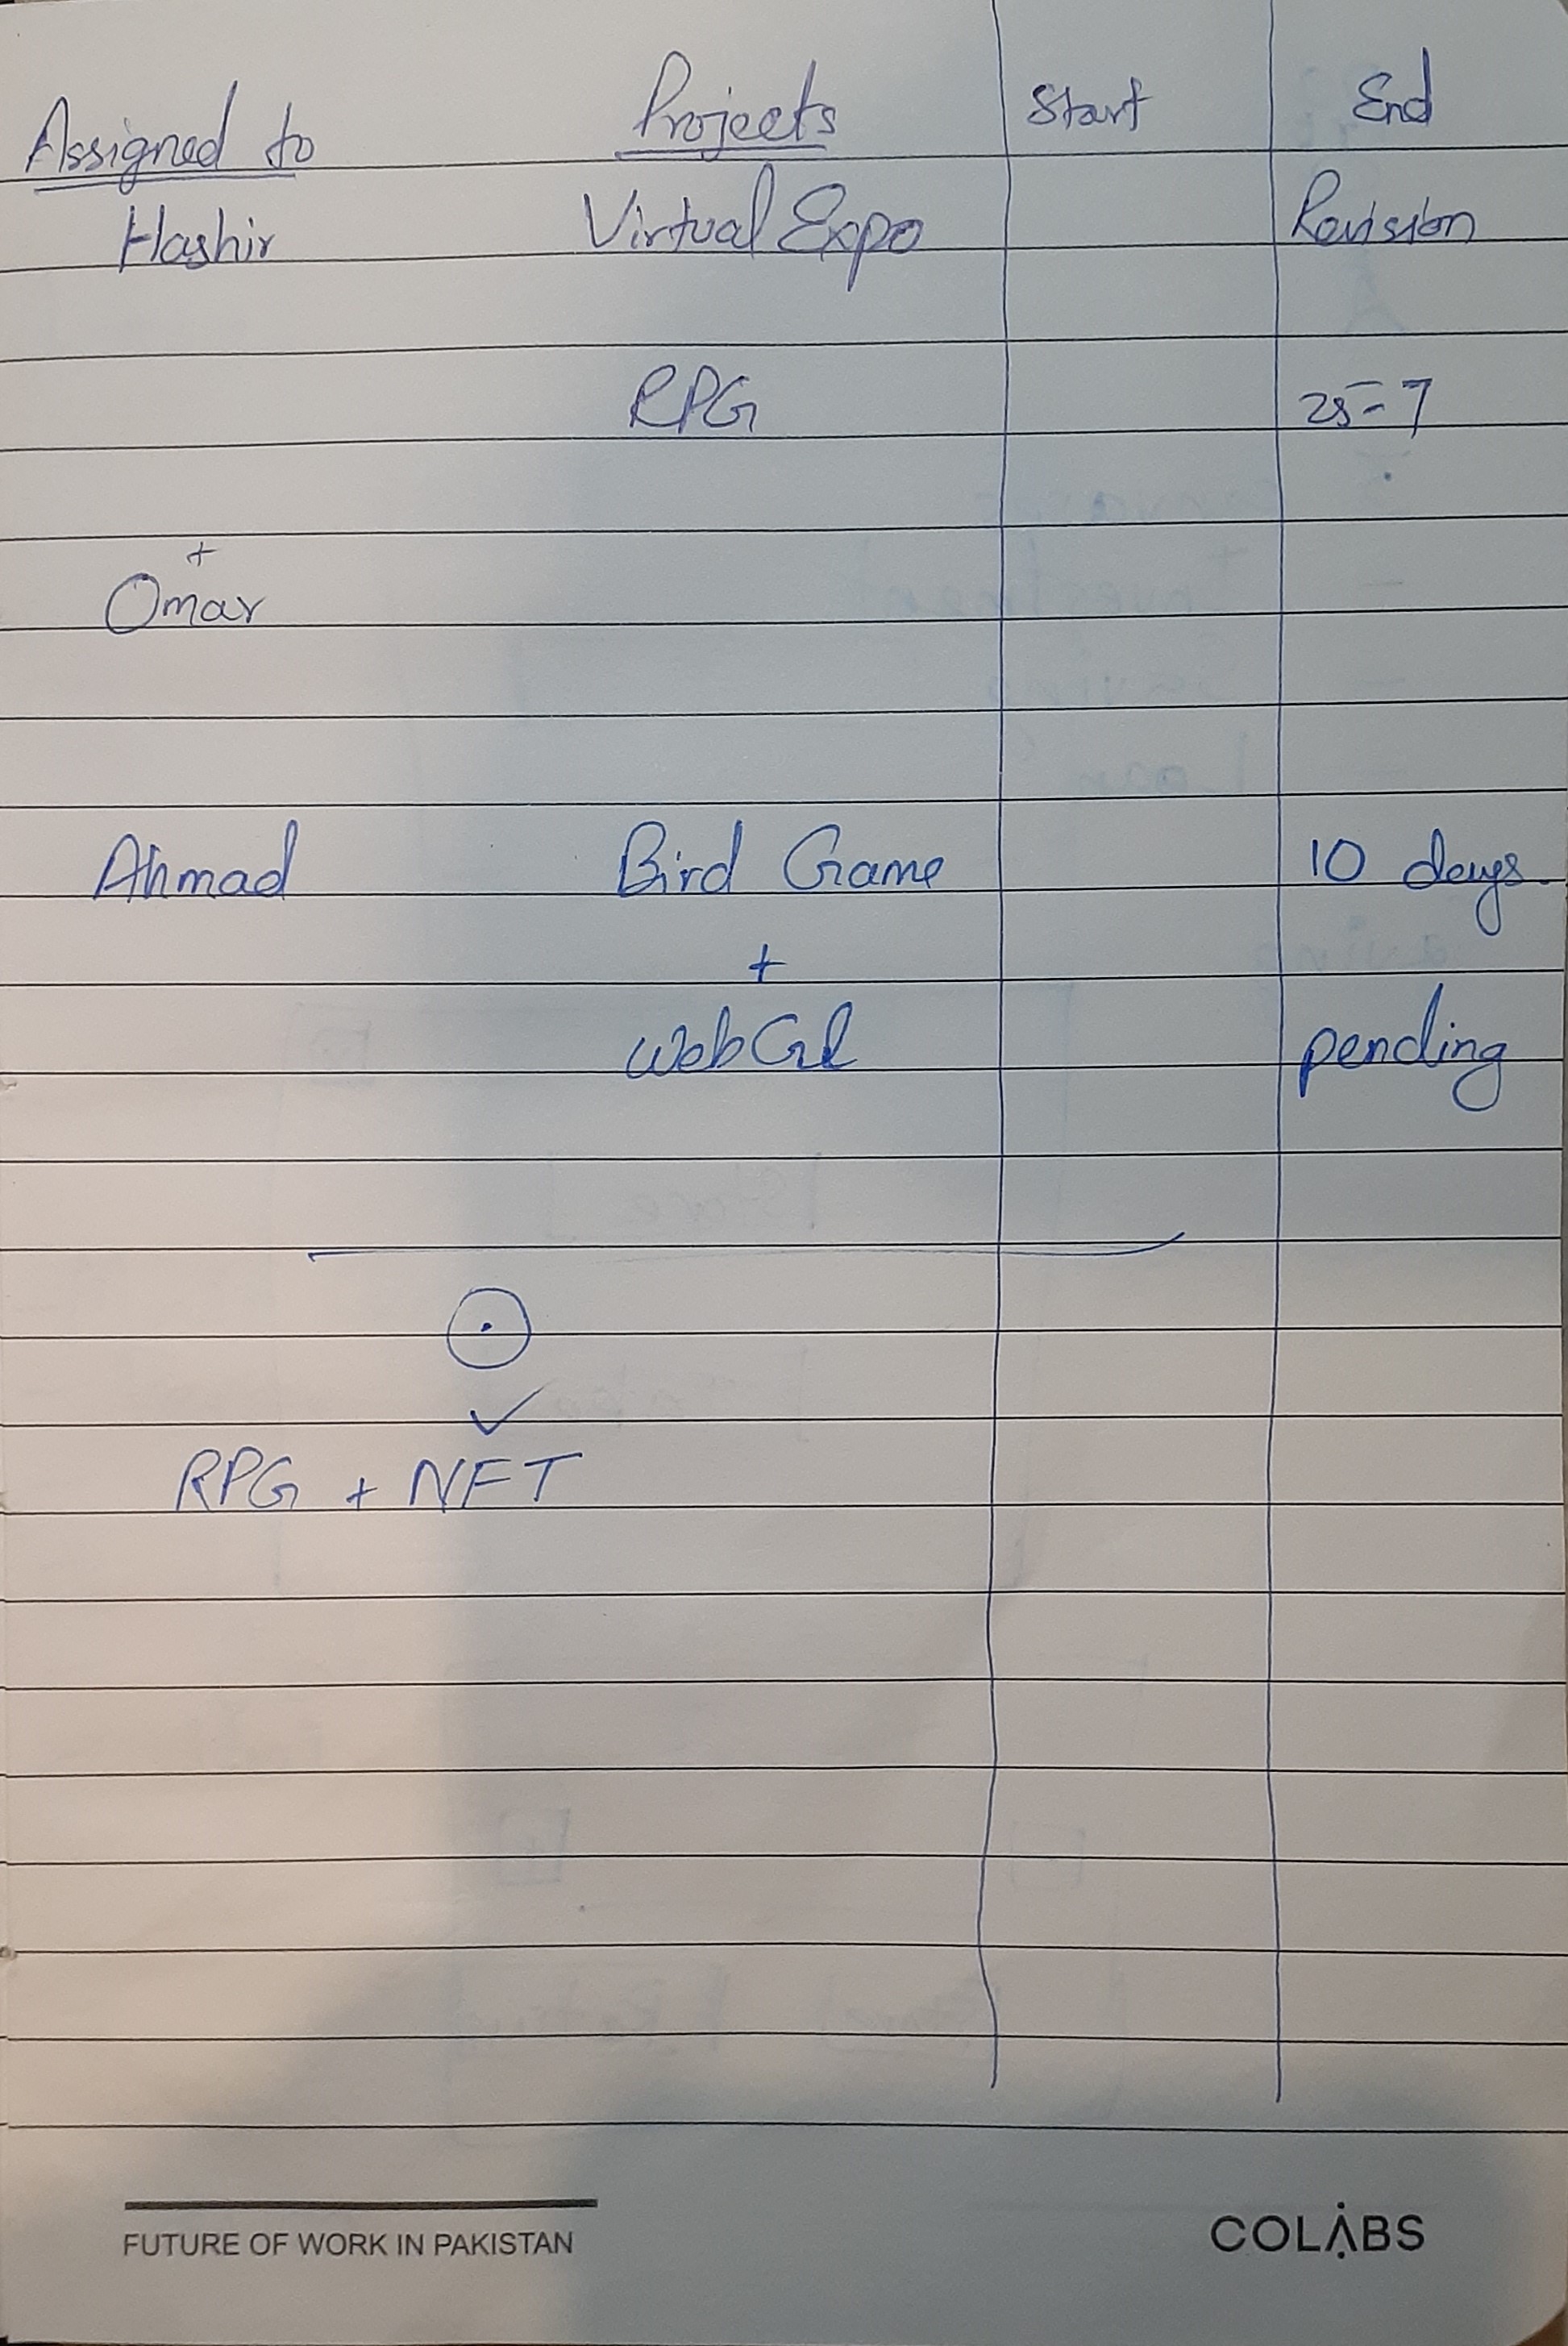 Assigned to Projects Start End
Hashir Virtual Expo Revision
RPG 25-7
+
Omar
Ahmad Bird Game 10 days
+
WebGl pending
RPG + NFT
FUTURE OF WORK IN PAKISTAN COLABS